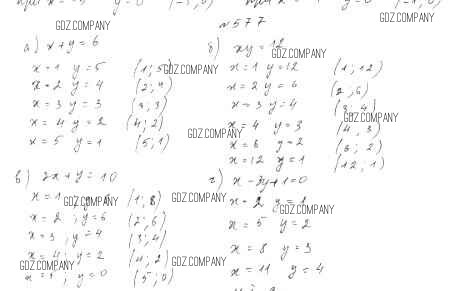 y=0 (-5;0) y=0 (-1;0)
GDZ.COMPANY GDZ.COMPANY
№577
а) x+y=6
x=1 y=5 (1;5)
x=2 y=4 (2;4)
x=3 y=3 (3;3)
x=4 y=2 (4;2)
x=5 y=1 (5;1)
GDZ.COMPANY
б) xy=12
GDZ.COMPANY
x=1 y=12 (1;12)
x=2 y=6 (2;6)
x=3 y=4 (3;4)
GDZ.COMPANY
x=4 y=3 (4;3)
GDZ.COMPANY
x=6 y=2 (6;2)
x=12 y=1 (12;1)
в) 2x+y=10
x=1 (1;8)
GDZ.COMPANY GDZ.COMPANY
x=2; y=6 (2;6)
x=3; y=4 (3;4)
x=4; y=2 (4;2)
GDZ.COMPANY GDZ.COMPANY
y=0 (5;0)
г) x-3y+1=0
x=2 y=1
GDZ.COMPANY
x=5 y=2
x=8 y=3
x=11 y=4